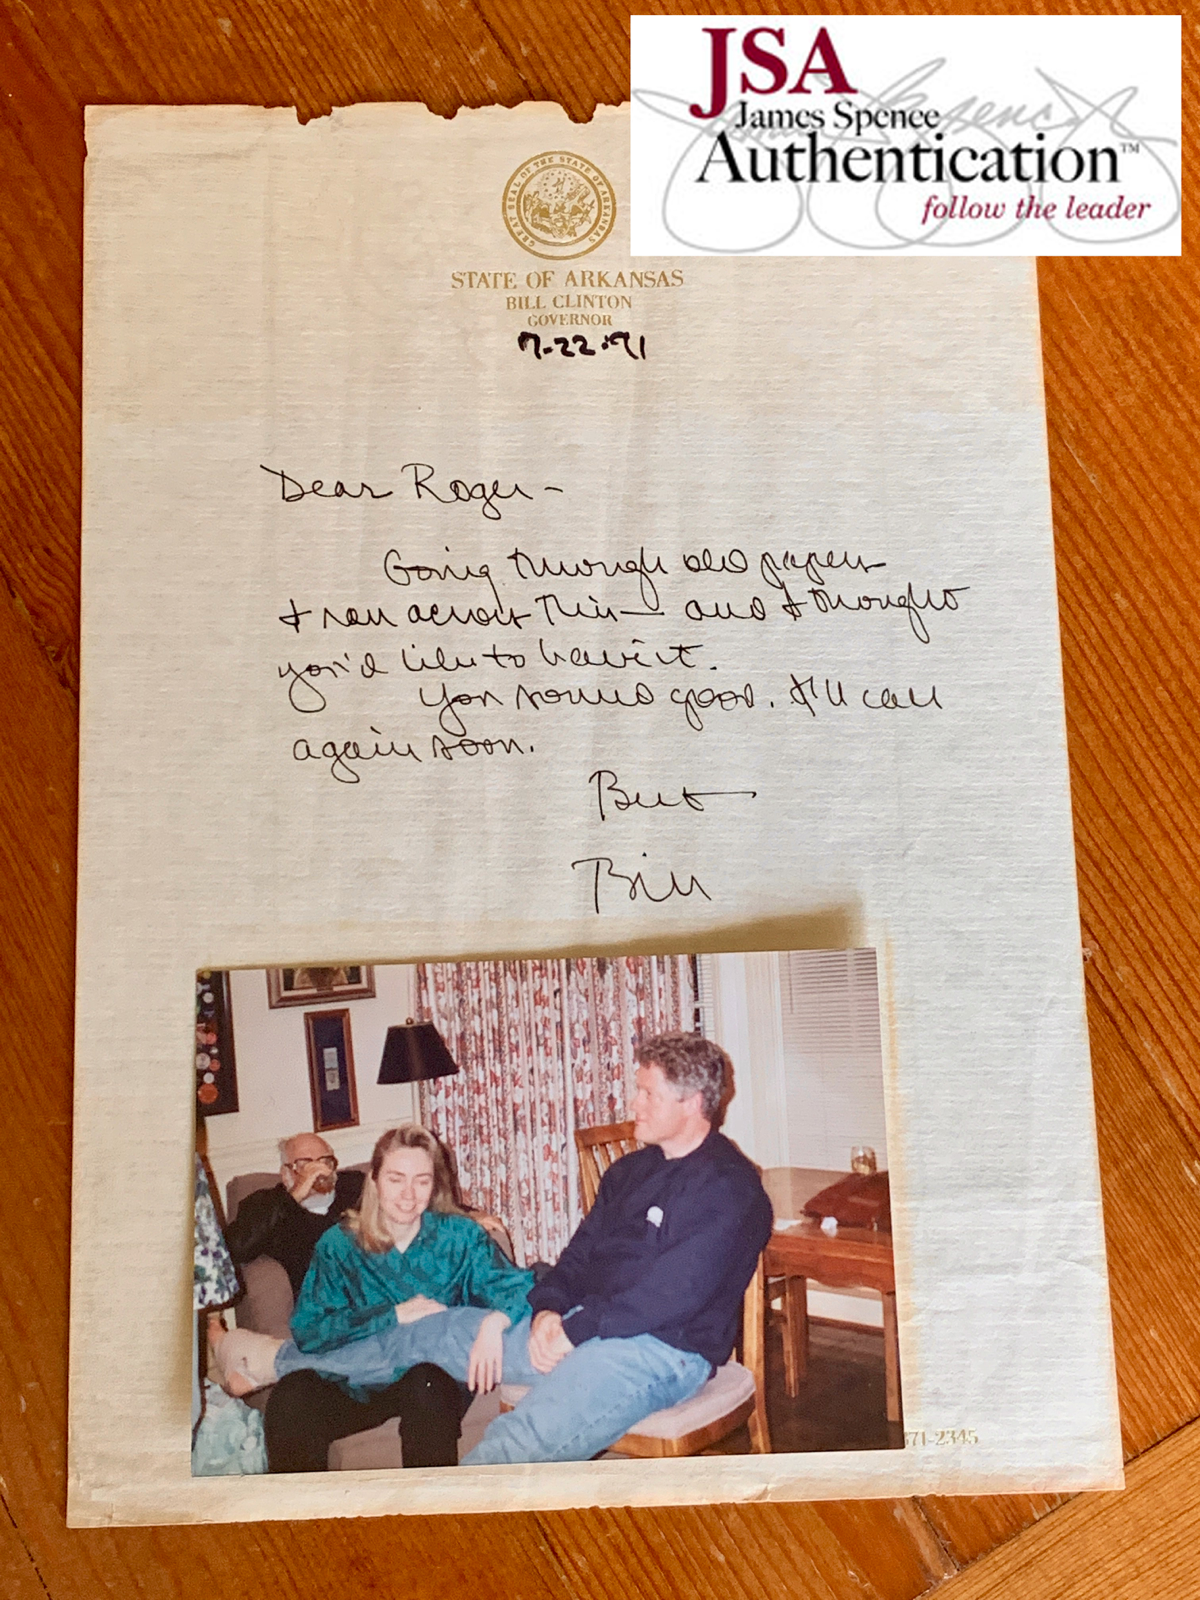 JSA
James Spence
Authentication™
follow the leader
GREAT SEAL OF THE STATE OF ARKANSAS
STATE OF ARKANSAS
BILL CLINTON
GOVERNOR
7-22-91
Dear Roger-
Going through old papers
I ran across this— and I thought
you'd like to have it.
You sound good. I'll call
again soon.
Best
Bill
371-2345